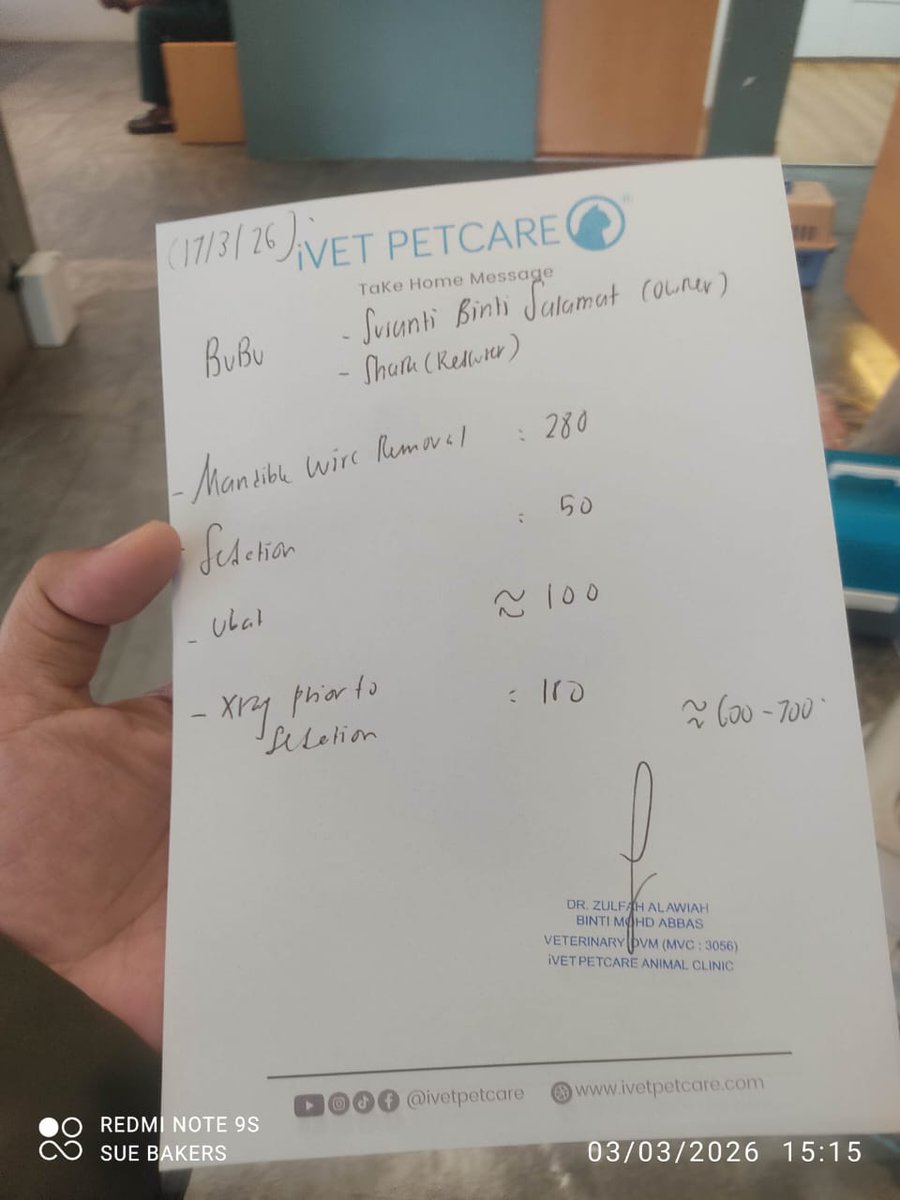 (17/3/26)
iVET PETCARE
Take Home Message
BuBu - Susanti Binti Salamat (owner)
- (Rescuer)
- Mandible wire Removal : 280
- Sedation : 50
- Ubat ≈ 100
- Xray prior to : 180
Sedation
≈ 600 - 700
DR. ZULFAH ALAWIAH
BINTI MOHD ABBAS
VETERINARY DVM (MVC : 3056)
iVET PETCARE ANIMAL CLINIC
@ivetpetcare www.ivetpetcare.com
REDMI NOTE 9S
SUE BAKERS
03/03/2026 15:15